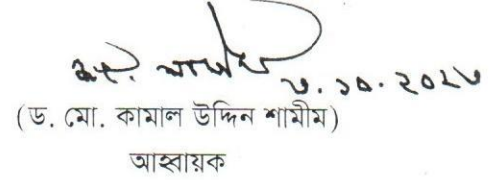 ৩.১০.২০২৩
(ড. মো. কামাল উদ্দিন শামীম)
আহ্বায়ক